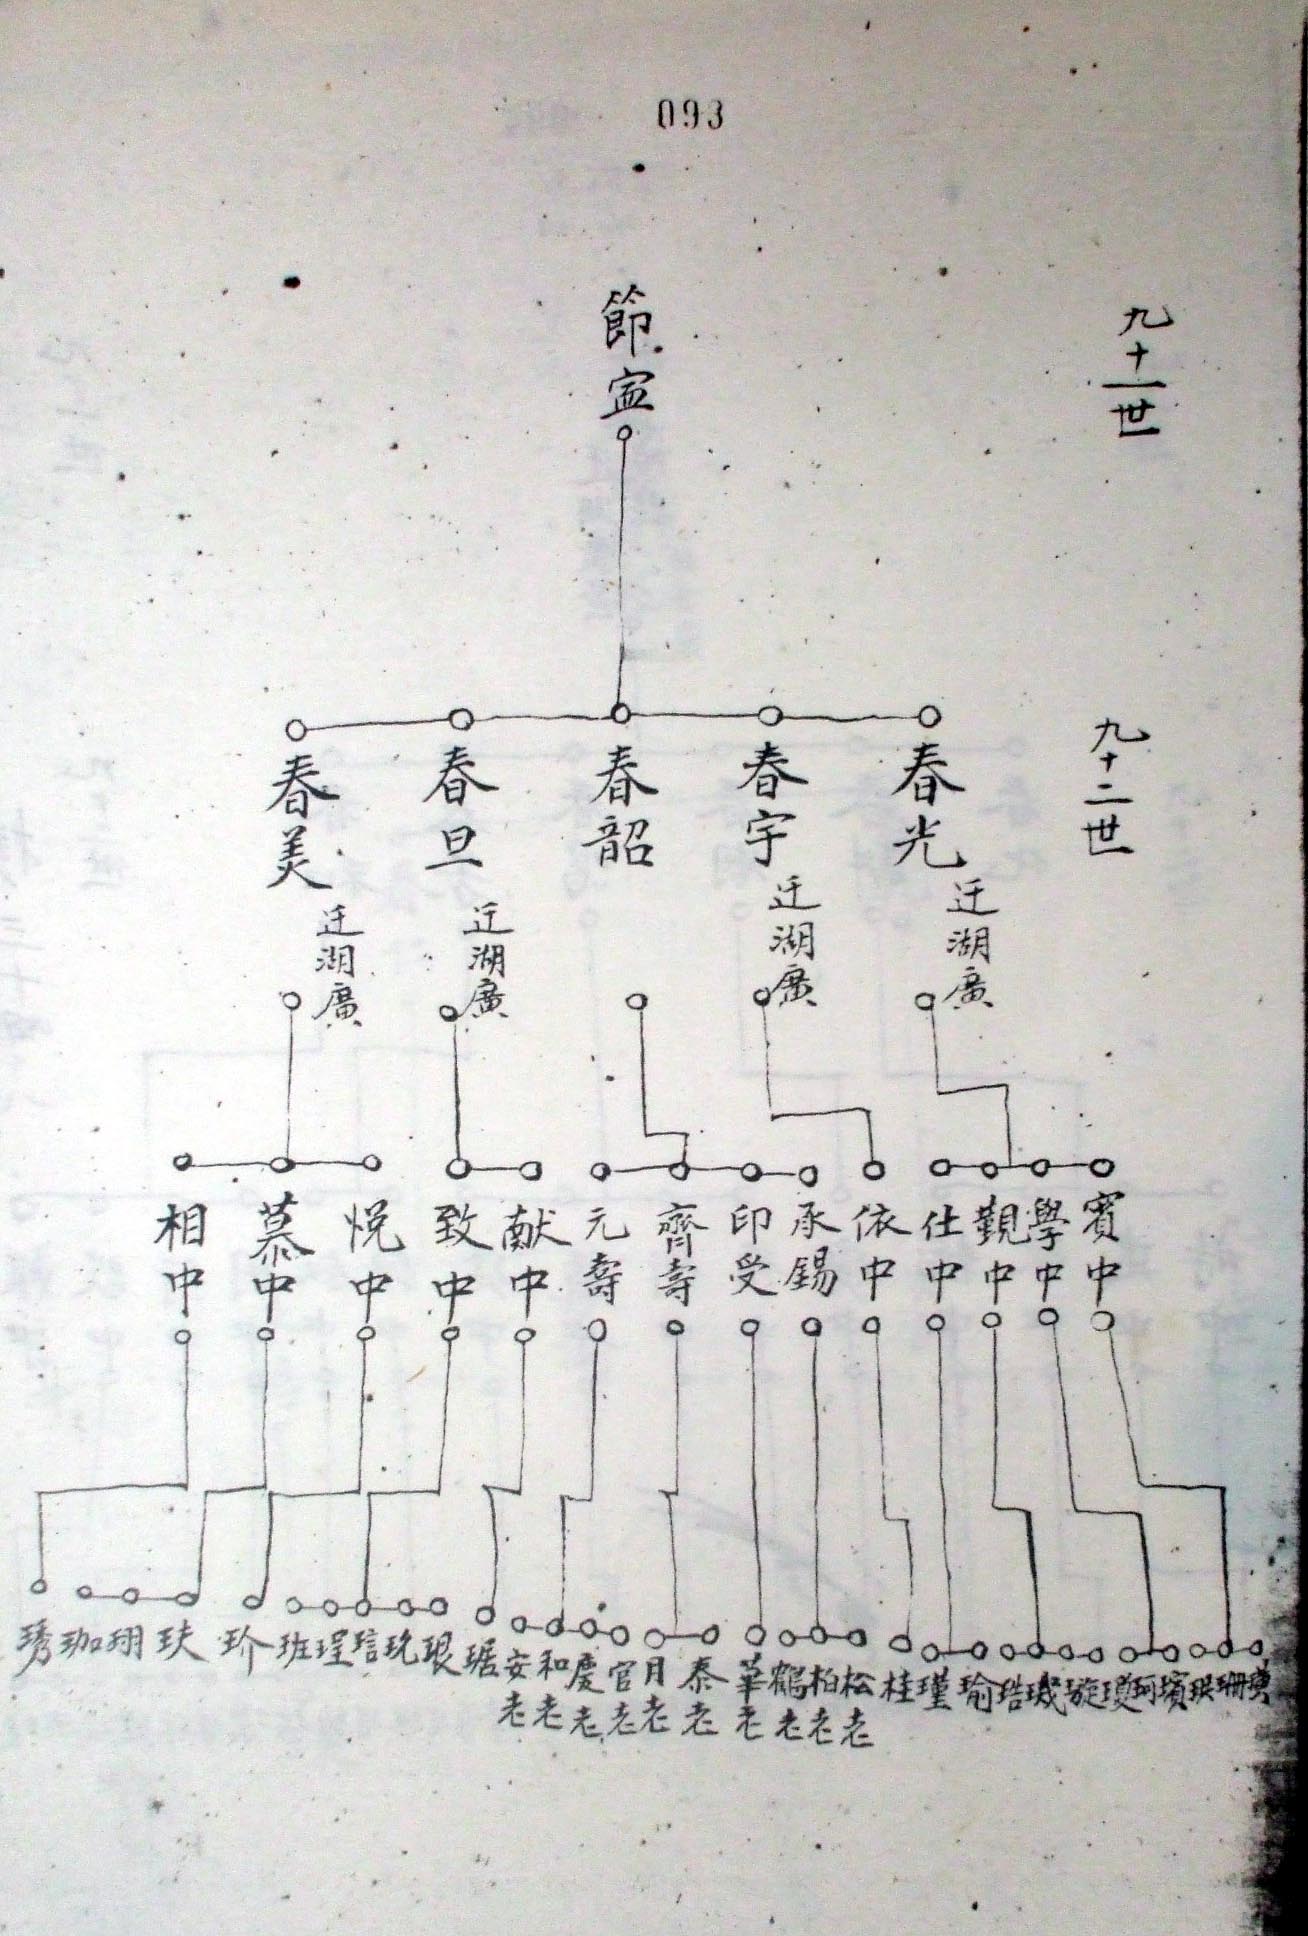 093
九十一世
節寍
九十二世
春光
迁湖廣
春宇
迁湖廣
春韶
春旦
迁湖廣
春美
迁湖廣
賓中
學中
觀中
仕中
依中
承錫
印受
齊壽
元壽
献中
致中
悦中
慕中
相中
珊
珙
璸
珂
璇
璣
琩
瑜
瑾
桂
松老
柏老
鶴老
華老
泰老
月老
官老
慶老
和老
安老
琚
珢
玧
琂
珵
班
玠
玞
珝
珈
琇